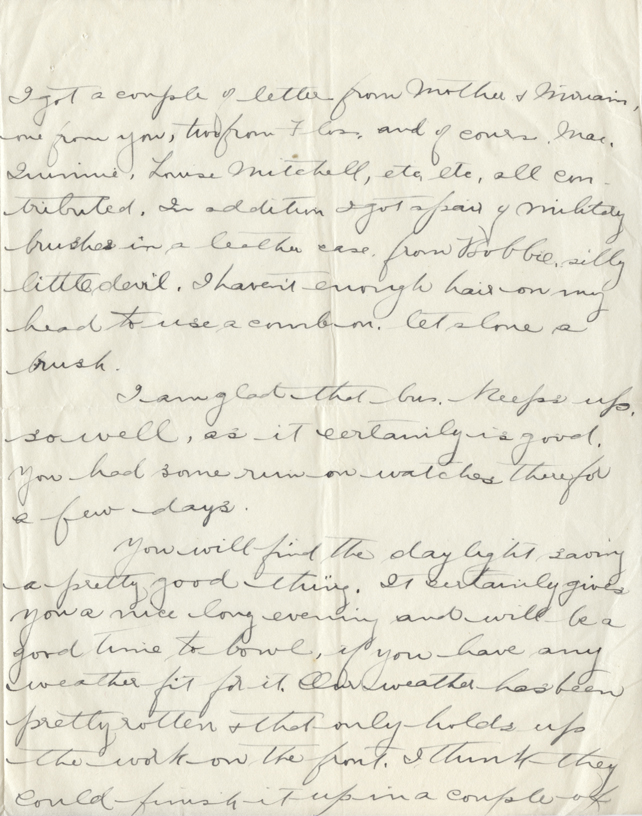 I got a couple of letter from Mother & Miriam,
one from you, two from Flos. and of cours. Mae.
Louise Mitchell, etc etc, all con-
tributed. In addition I got a pair of military
brushes in a leather case. from Bobbie, silly
little devil. I haven't enough hair on my
head to use a comb on. let alone a
brush.
I am glad that bus. keeps up,
so well, as it certainly is good.
You had some run on watches there for
a few days.
You will find the day light saving
a pretty good thing. It certainly gives
you a nice long evening and will be a
good time to bowl, if you have any
weather fit for it. Our weather has been
pretty rotten & that only holds up
the work on the front. I think they
could finish it up in a couple of